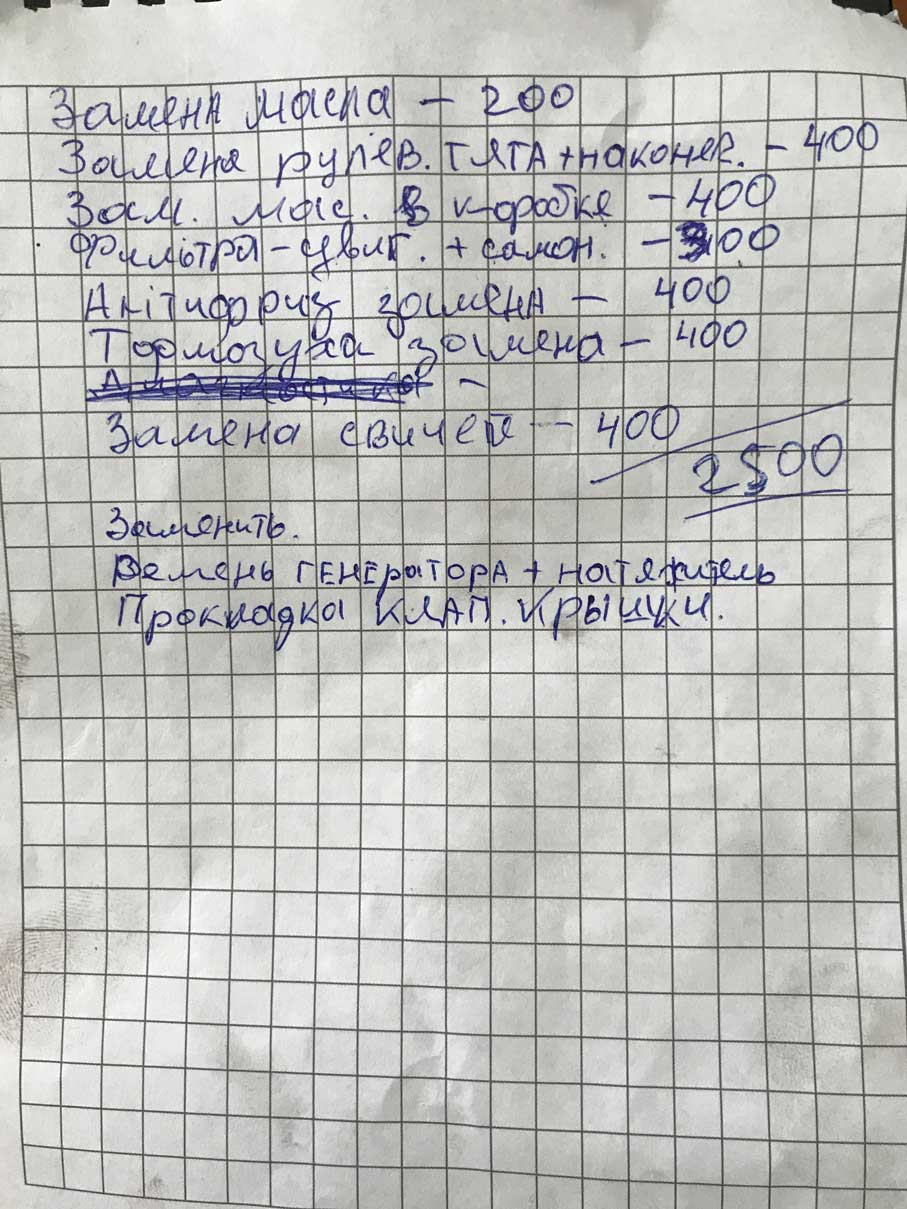 Замена масла - 200
Замена рулев. тяга + наконеч. - 400
Зам. мас. в коробке - 400
Фильтра - двиг. + салон. - 300
Антифриз замена - 400
Тормозуха замена - 400
-
Замена свичей - 400
2500
Заменить.
Ремень генератора + натяжитель
Прокладка клап. крышки.